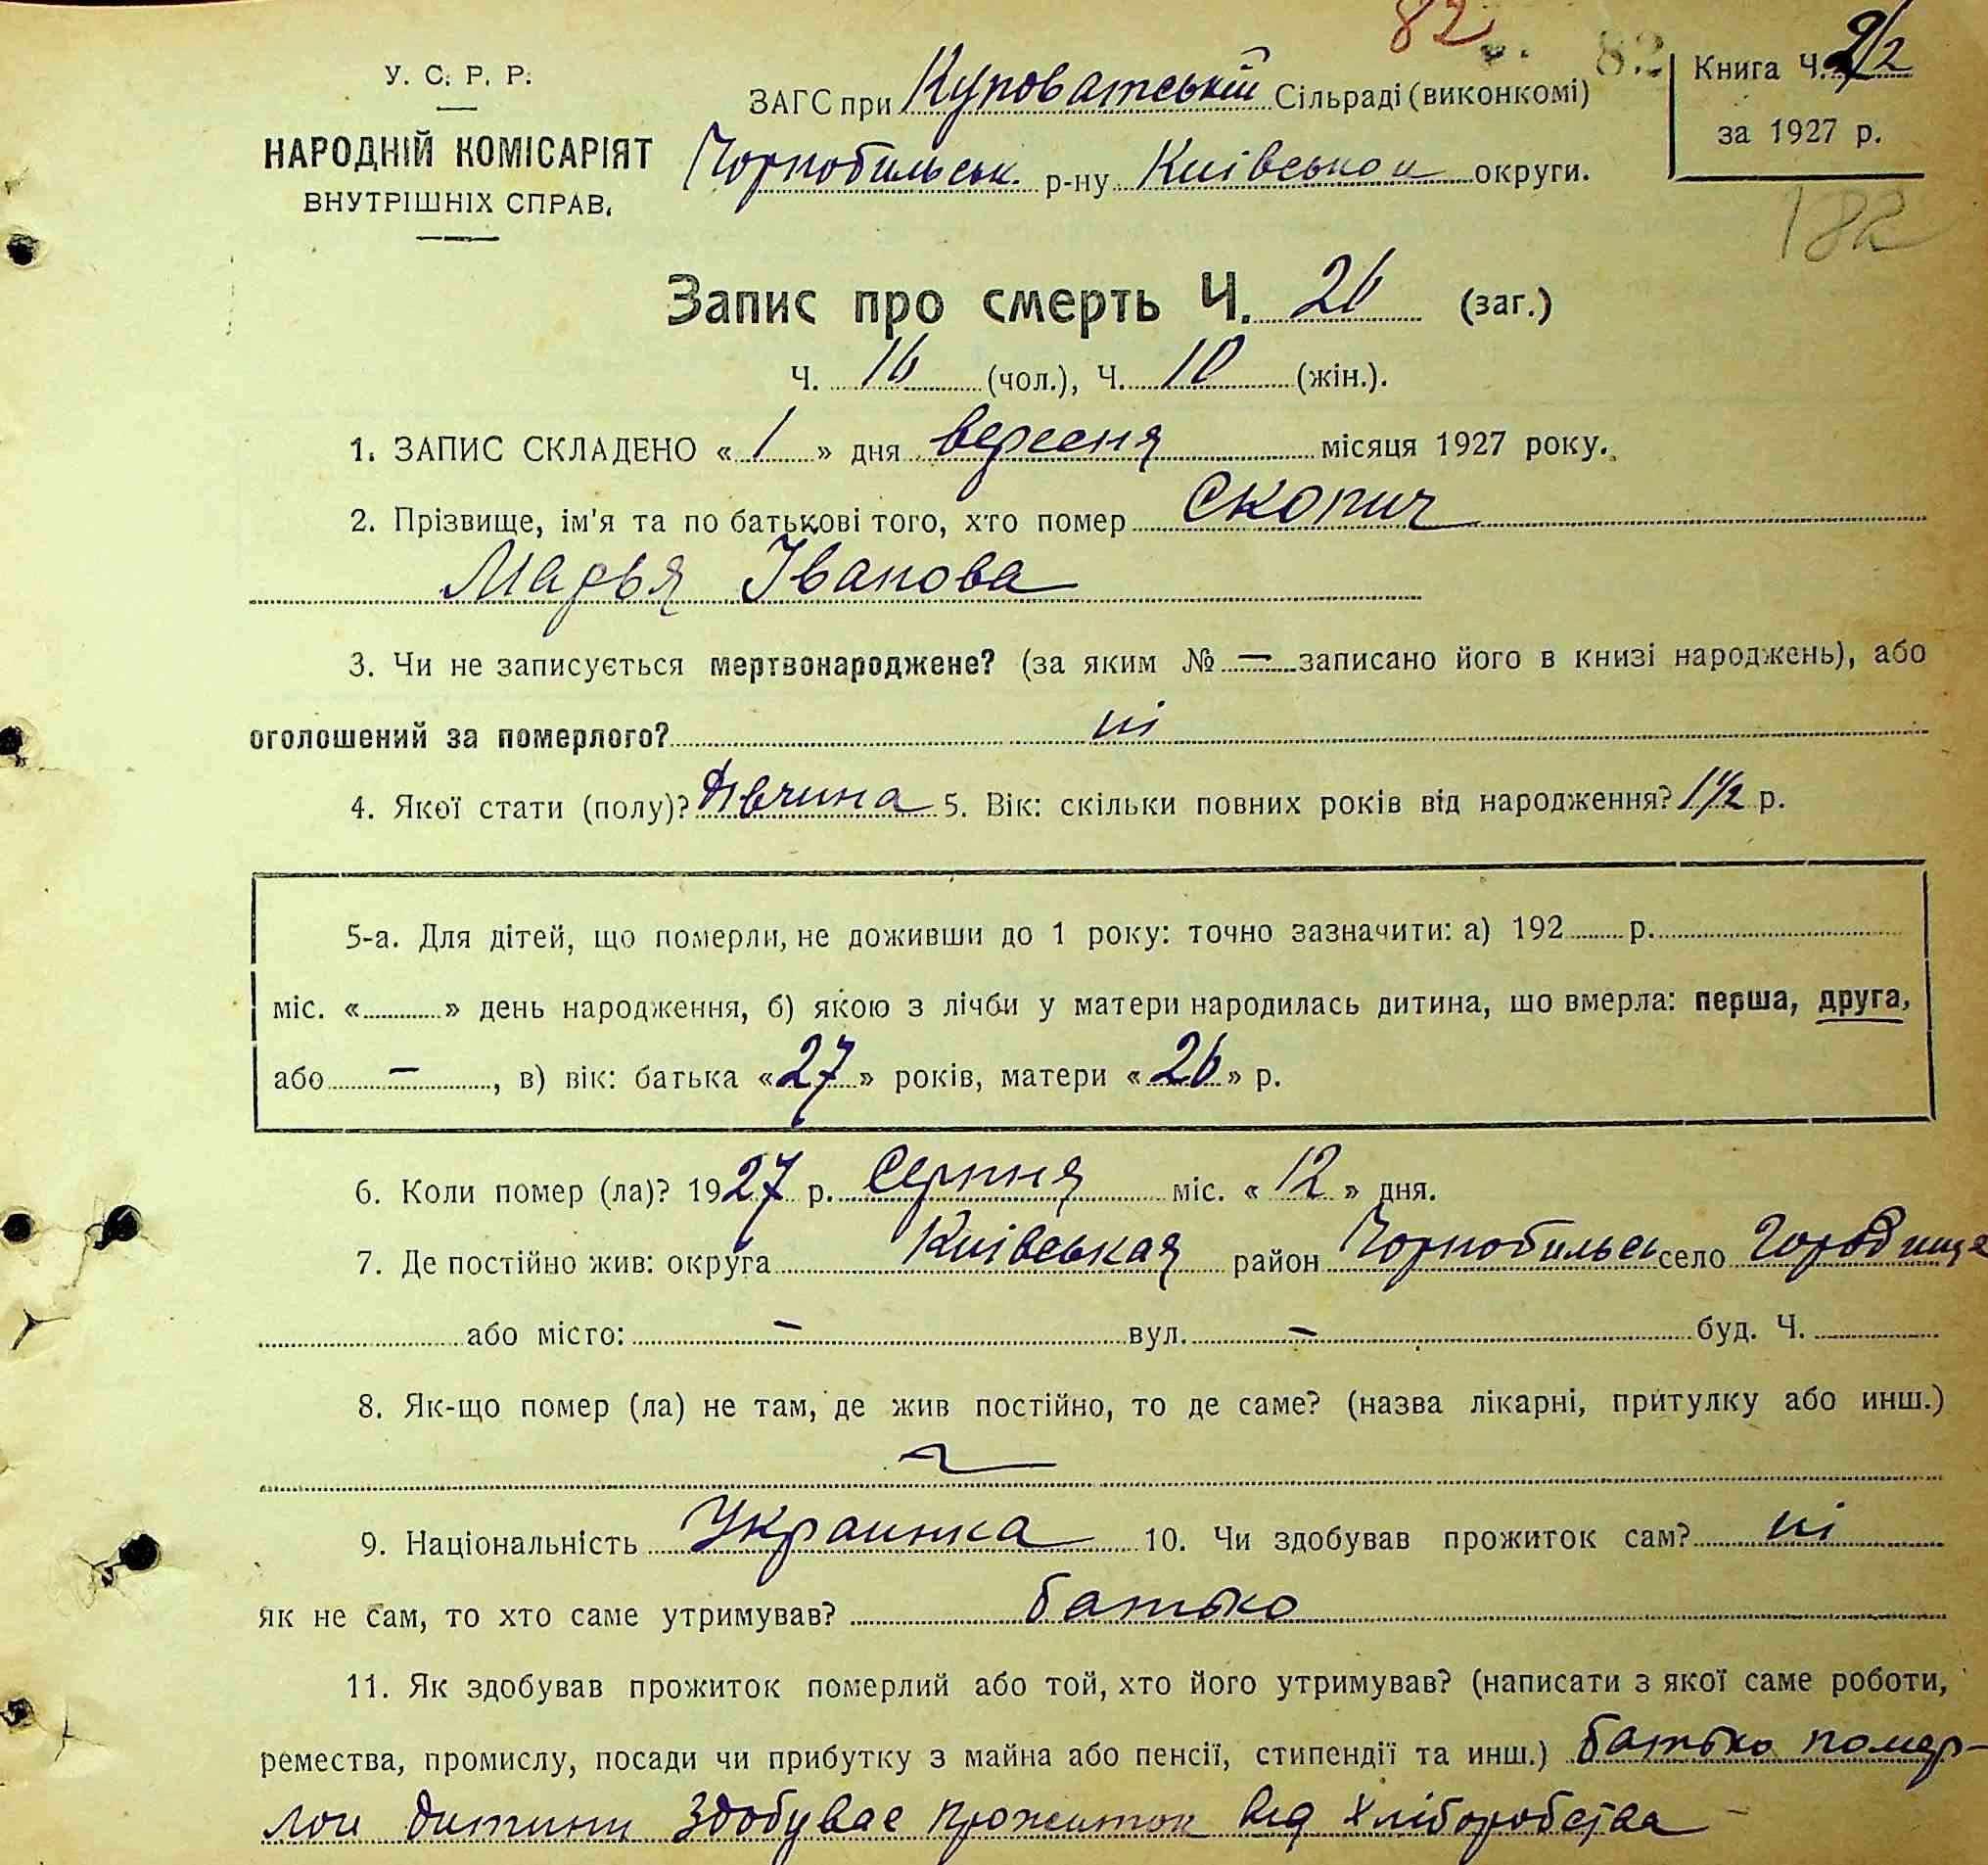 82
82
У. С. Р. Р.
НАРОДНІЙ КОМІСАРІЯТ
ВНУТРІШНІХ СПРАВ.
ЗАГС при Куповатській Сільраді (виконкомі)
Чорнобильськ. р-ну Київськои округи.
Книга Ч. 2/2
за 1927 р.
182
Запис про смерть Ч. 26 (заг.)
Ч. 16 (чол.), Ч. 10 (жін.).
1. ЗАПИС СКЛАДЕНО « 1 » дня вересня місяця 1927 року.
2. Прізвище, ім'я та по батькові того, хто помер Скопич
Марья Іванова
3. Чи не записується мертвонароджене? (за яким № — записано його в книзі народжень), або
оголошений за померлого? ні
4. Якої стати (полу)? Дівчина 5. Вік: скільки повних років від народження? 1 1/2 р.
5-а. Для дітей, що померли, не доживши до 1 року: точно зазначити: а) 192 р.
міс. « » день народження, б) якою з лічби у матери народилась дитина, шо вмерла: перша, друга,
або —, в) вік: батька «27» років, матери «26» р.
6. Коли помер (ла)? 1927 р. Серпня міс. « 12 » дня.
7. Де постійно жив: округа Київськая район Чорнобильськ село Городище
або місто: — вул. — буд. Ч.
8. Як-що помер (ла) не там, де жив постійно, то де саме? (назва лікарні, притулку або инш.)
9. Національність Украинка 10. Чи здобував прожиток сам? ні
як не сам, то хто саме утримував? батько
11. Як здобував прожиток померлий або той, хто його утримував? (написати з якої саме роботи,
ремества, промислу, посади чи прибутку з майна або пенсії, стипендії та инш.) батько помер-
лои дитини здобувае прожиток від хліборобства